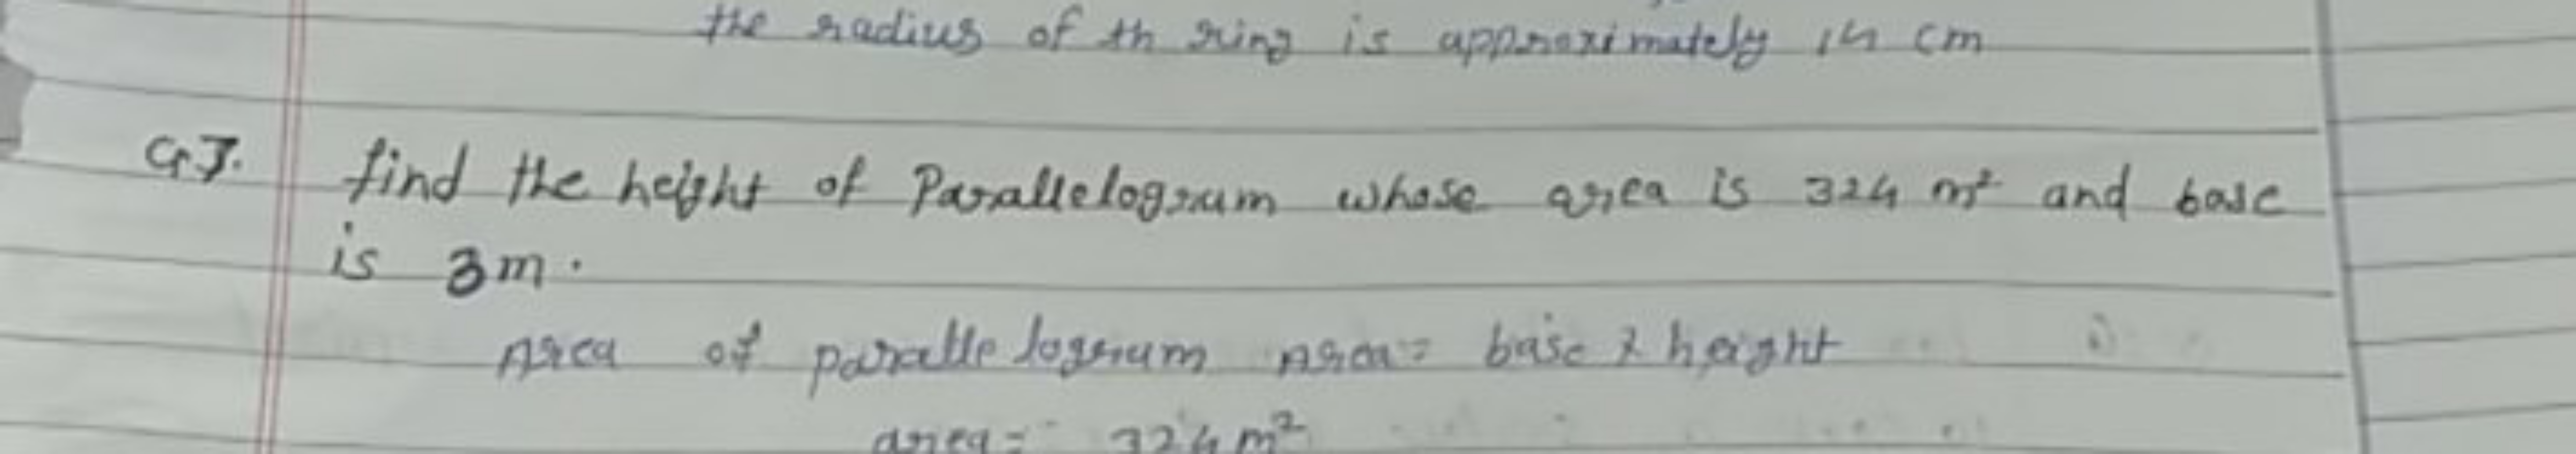 the radius of th ring is approximately 14 cm
Q7. find the height of Parallelogram whose area is 324 m² and base
is 3m.
Area of paralle logram Area= base x height
area= 324m²